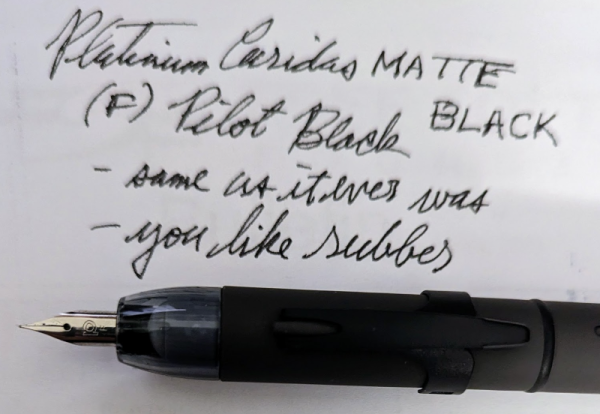 Platinum Curidas MATTE
BLACK
(F) Pilot Black
- same as it ever was
- you like rubber